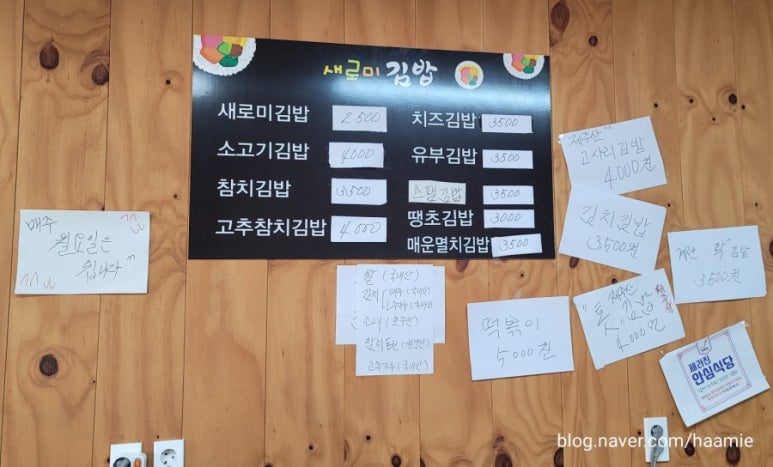 새로미 김밥
새로미김밥 2,500
소고기김밥 4,000
참치김밥 3,500
고추참치김밥 4,000
치즈김밥 3500
유부김밥 3500
스팸김밥 3500
땡초김밥 3000
매운멸치김밥 3500
매주
월요일은
쉽니다 ^^
쌀 (국내산)
제주산
고사리김밥
4,000원
김치김밥
3,500원
김밥
3,500원
떡볶이
5,000원
톳 김밥
4,000원
제라진
안심식당
blog.naver.com/haamie